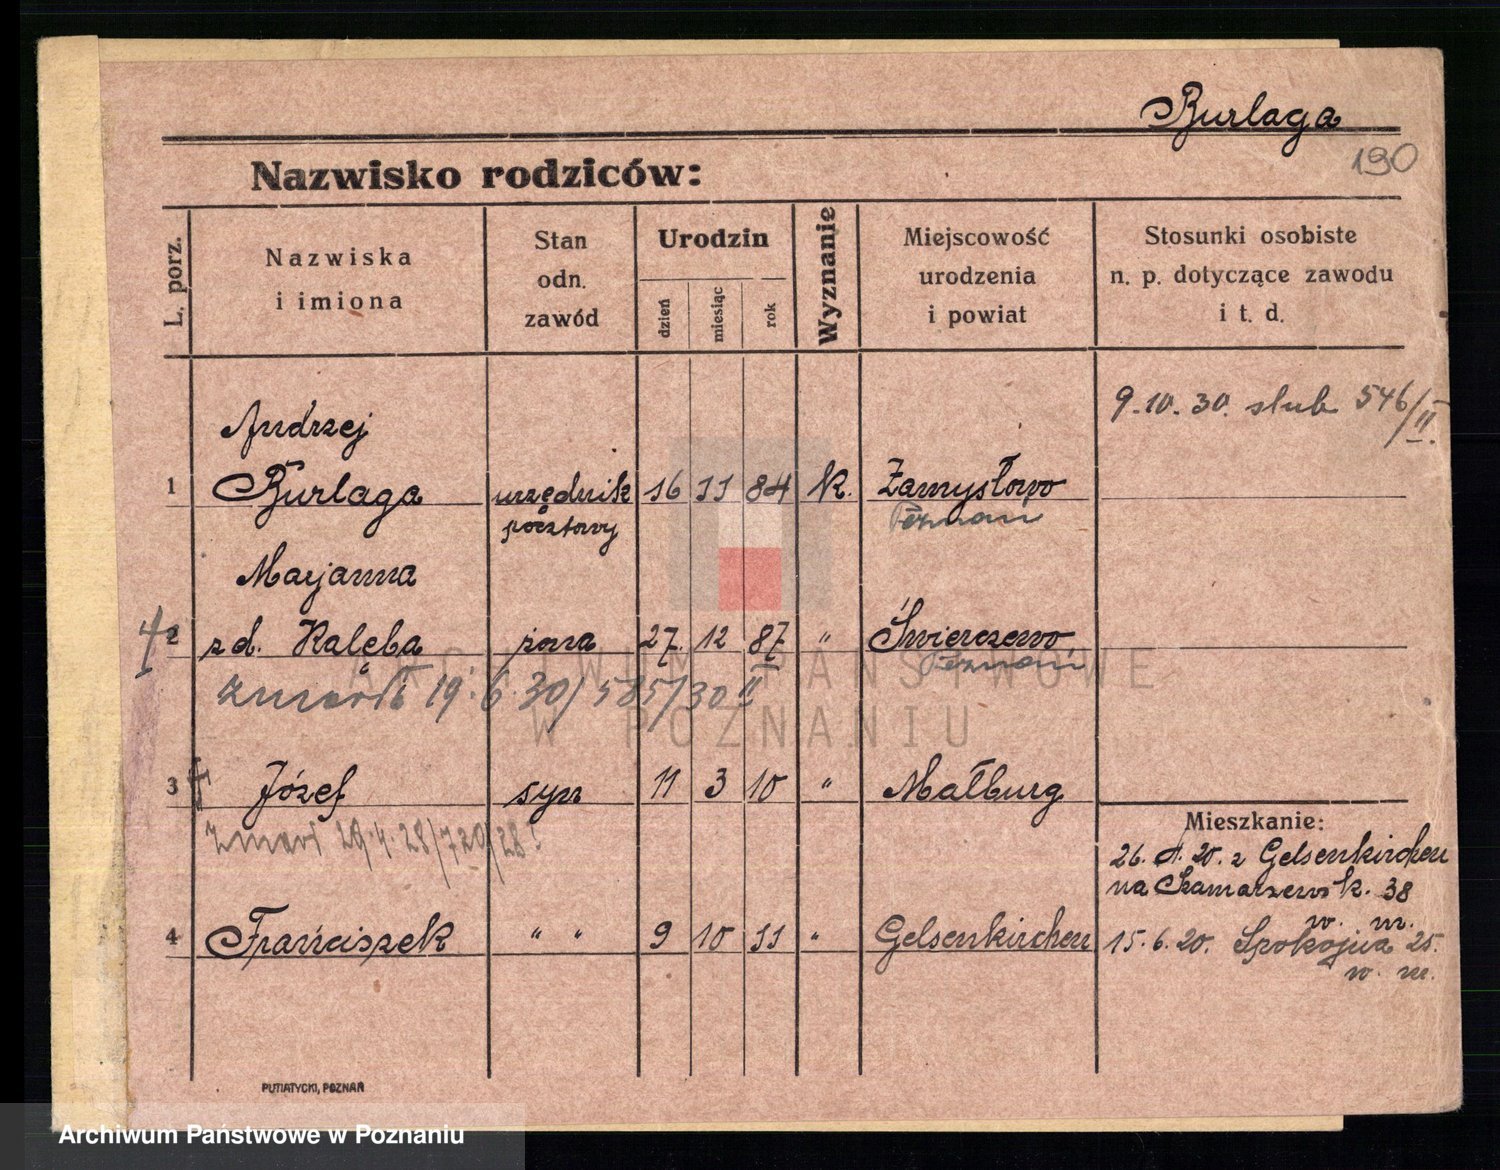 Burlaga
190
Nazwisko rodziców:
L. porz.
Nazwiska
i imiona
Stan
odn.
zawód
Urodzin
dzień
miesiąc
rok
Wyznanie
Miejscowość
urodzenia
i powiat
Stosunki osobiste
n. p. dotyczące zawodu
i t. d.
9.10.30. slub 546/II.
Andrzej
1 Burlaga urzędnik 16 11 84 k. Zamysłowo
pocztowy Poznań
Marjanna
2 zd. Kalęba żona 27. 12 87 " Świerczewo
Poznań
zmarła 19.6.30/585/30 II
3 Józef syn 11 3 10 " Małburg
zmarł 29.4.28/720/28
Mieszkanie:
26. 20. z Gelsenkirchen
na Szamarzewsk. 38
w. m.
4 Franciszek " " 9 10 11 " Gelsenkirchen
15.6.20. Spokojna 25.
w. m.
PUTIATYCKI, POZNAŃ
ARCHIWUM PAŃSTWOWE
W POZNANIU
Archiwum Państwowe w Poznaniu